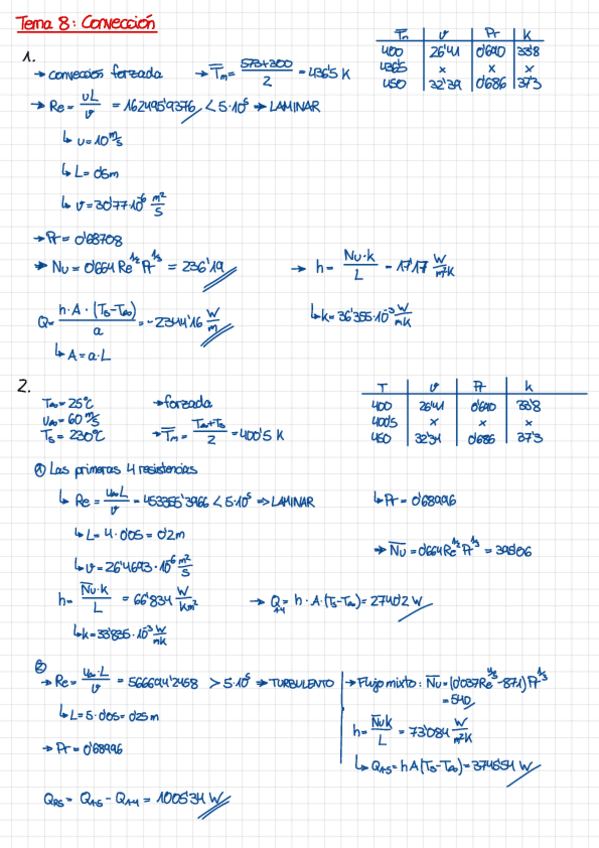 Tema 8: Convección
1.
→ convección forzada → T̅m = (573+300)/2 = 436'5 K
Tm | ν | Pr | k
400 | 26'41 | 0'690 | 33'8
436'5 | x | x | x
450 | 32'39 | 0'686 | 37'3
→ Re = uL/ν = 162495'9376 < 5·10⁵ → LAMINAR
↳ u = 10 m/s
↳ L = 0'5m
↳ ν = 30'77·10⁻⁶ m²/s
→ Pr = 0'68708
→ Nu = 0'664 Re^1/2 Pr^1/3 = 236'19 → h = Nu·k/L = 17'17 W/m²K
↳ k = 36'355·10⁻³ W/mK
Q = h·A·(Ts-T∞)/a = -2344'16 W/m
↳ A = a·L
2.
T∞ = 25℃ → forzada
u∞ = 60 m/s
Ts = 230℃ → T̅m = (T∞+Ts)/2 = 400'5 K
T | ν | Pr | k
400 | 26'41 | 0'690 | 33'8
400'5 | x | x | x
450 | 32'39 | 0'686 | 37'3
① Las primeras 4 resistencias
↳ Re = u∞L/ν = 453355'3966 < 5·10⁵ → LAMINAR ↳ Pr = 0'68996
↳ L = 4·0'05 = 0'2m
→ N̅u̅ = 0'664 Re^1/2 Pr^1/3 = 395'06
↳ ν = 26'4693·10⁻⁶ m²/s
h = N̅u̅·k/L = 66'834 W/Km² → Q₁₋₄ = h·A·(Ts-T∞) = 2740'2 W
↳ k = 33'835·10⁻³ W/mK
②
→ Re = u∞·L/ν = 566694'2458 > 5·10⁵ → TURBULENTO
↳ L = 5·0'05 = 0'25m
→ Pr = 0'68996
→ Flujo mixto: N̅u̅ = (0'037Re^4/5 - 871) Pr^1/3
= 540
h = N̅u̅k/L = 73'084 W/m²K
↳ Q₁₋₅ = hA(Ts-T∞) = 3745'54 W
QR5 = Q₁₋₅ - Q₁₋₄ = 1005'34 W